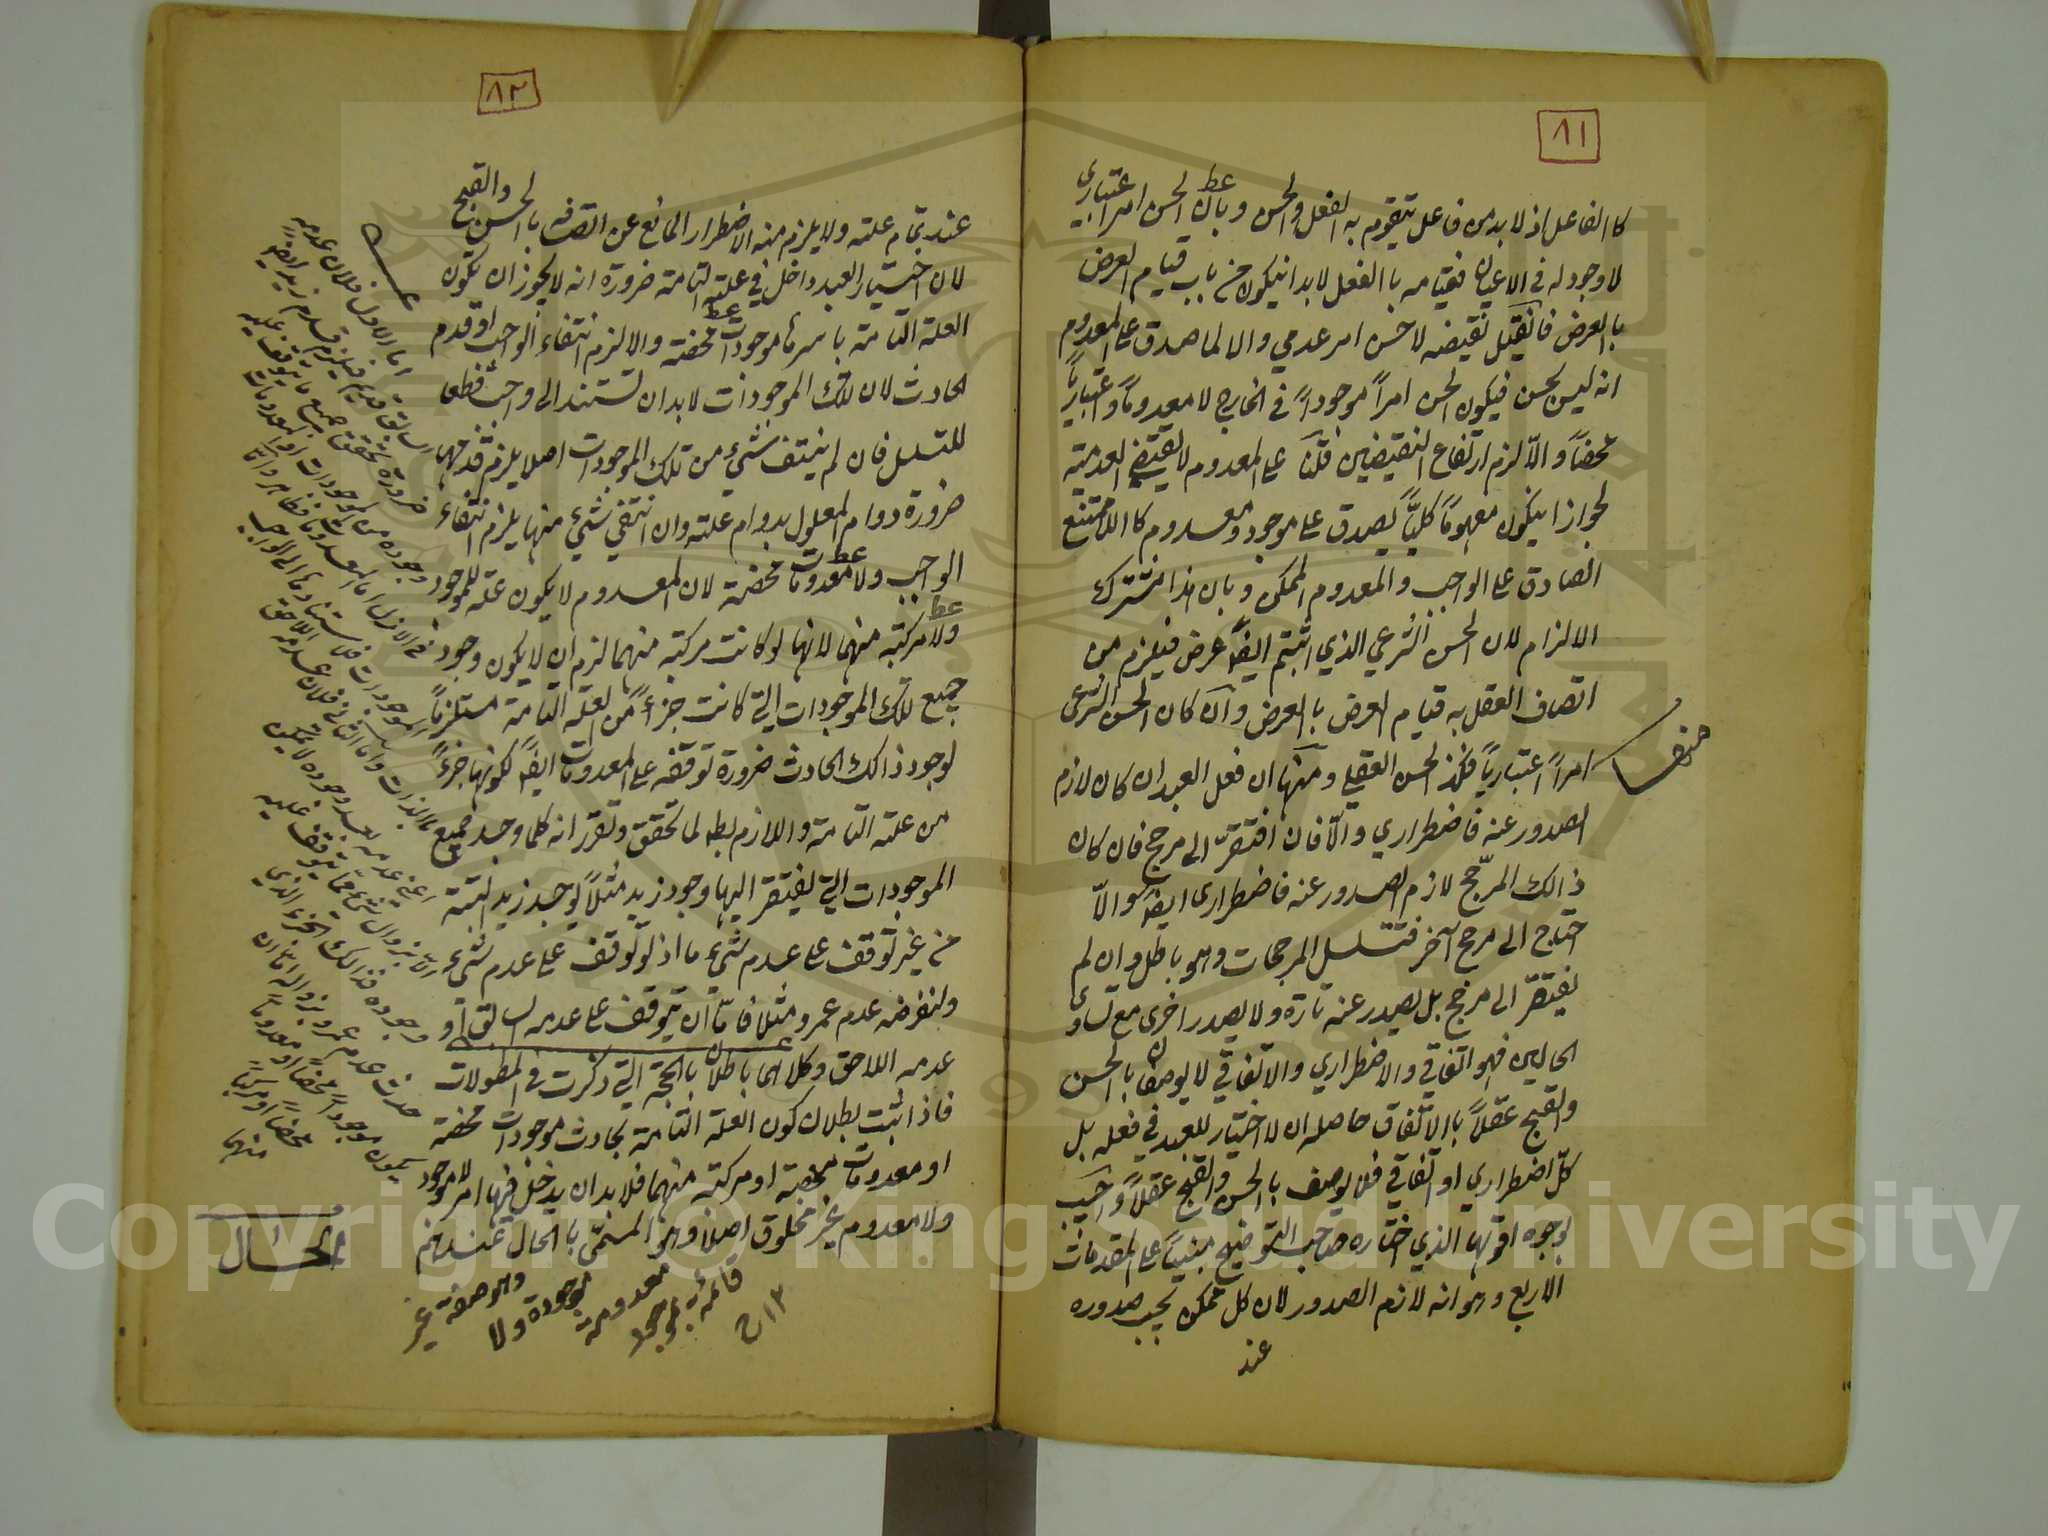 ٨١
كاالفاعل اذ لا بد من فاعل يتقوم به الفعل والحسن وبان الحسن امر اعتباري
عط
لا وجود له في الاعيان فقيامه باالفعل لا بد انيكون من باب قيام العرض
بالعرض فانقيل نقيضه لا حسن امر عدمي والا لما صدق على المعدوم
انه ليس بحسن فيكون الحسن امراً موجوداً في الخارج لا معدوماً واعتبارياً
محضاً والّا لزم ارتفاع النقيضين قلنا على المعدوم لا يقتضي العدمية
لجواز انيكون مفهوماً كلياً يصدق على موجود ومعدوم كااللاممتنع
الصادق على الواجب والمعدوم الممكن وبان هذا مشترك
الالزام لان الحسن الشرعي الذي اثبتم ايضاً عرض فيلزم من
اتصاف الفعل به قيام العرض بالعرض وان كان الحسن الشرعي
امراً اعتبارياً فكذ الحسن العقلي ومنها ان فعل العبد ان كان لازم
الصدور عنه فاضطراري والّا فان افتقر الى مرجح فان كان
ذالك المرجّح لازم الصدور عنه فاضطراري ايضاً والّا
احتاج الى مرجح آخر فتتسلسل المرجحات وهو باطل وان لم
يفتقر الى مرجح بل يصدر عنه تارة ولا يصدر اخرى مع تساوي
الحالين فهو اتفاقي والاضطراري والاتفاقي لا يوصفان بالحسن
والقبح عقلاً باالاتفاق حاصله ان لا اختيار للعبد في فعله بل
كلّ اضطراري او اتفاقي فلا يوصف بالحسن والقبح عقلاً واجيب
بوجوه اقويها الذي اختاره صاحب التوضيح مبنياً على المقدمات
الاربع وهو انه لازم الصدور لان كل ممكن يجب صدوره
عند
٨٢
عند تمام علته ولا يلزم منه الاضطرار المانع عن اتصافه بالحسن والقبح
لان اختيار العبد داخل في علته التامة ضرورة انه لا يجوز ان يكون
العلة التامة باسرها موجودات محضة والا لزم انتفاء الواجب او قدم
عط
الحادث لان تلك الموجودات لا بد ان تستند الى واجب قطعا
للتسلسل فان لم ينتف شيء من تلك الموجودات اصلا يلزم قدمها
ضرورة دوام المعلول بدوام علته وان انتفي شيء منها يلزم انتفاء
الواجب ولا معدومات محضة لان المعدوم لا يكون علة للموجود
عط
ولا مركبة منهما لانها لو كانت مركبة منهما لزم ان لا يكون وجود
عط
جميع تلك الموجودات التي كانت جزءً من العلة التامة مستلزماً
لوجود ذالك الحادث ضرورة توقفه على المعدومات ايضاً لكونها جزءاً
من علته التامة واللازم بط لما تحقق وتقرر انه كلما وجد جميع
الموجودات التي يفتقر اليها وجود زيد مثلاً يوجد زيد البتة
من غير توقف على عدم شيء ما اذ لو توقف على عدم شيء
ولنفرضه عدم عمرو مثلا فامّا ان يتوقف على عدمه السابق او
عدمه اللاحق وكلاهما باطلان بالحجة التي ذكرت في المطولات
فاذا ثبت بطلان كون العلة التامة لحادث موجودات محضة
او معدومات محضة او مركبة منهما فلا بد ان يدخل فيها امر لا موجود
ولا معدوم غير مخلوق اصلاً وهو المسمّى بالحال عندهم
وهو صفة غير
موجودة ولا
معدومة
قائمة بموجود
١٢ ح
الحال
اما الاول فلان عدمه
سابق قديم فيلزم قدم زيد ايضاً
ضرورة تحقق جميع ما يتوقف عليه
وجوده من الموجودات والمعدومات
في الازل اما المعدومات فظاهر واما
الموجودات فلاستنادها الى الواجب
بالذات واما الثاني فلان عدمه اللاحق
اعني عدمه بعد وجوده لا يكون
الا بزوال شيء مما يتوقف عليه
وجوده فذالك الجزء الذي
حدث عدم عمرو بزواله اما ان
يكون موجوداً محضاً او معدوماً
محضاً او مركباً
منهما